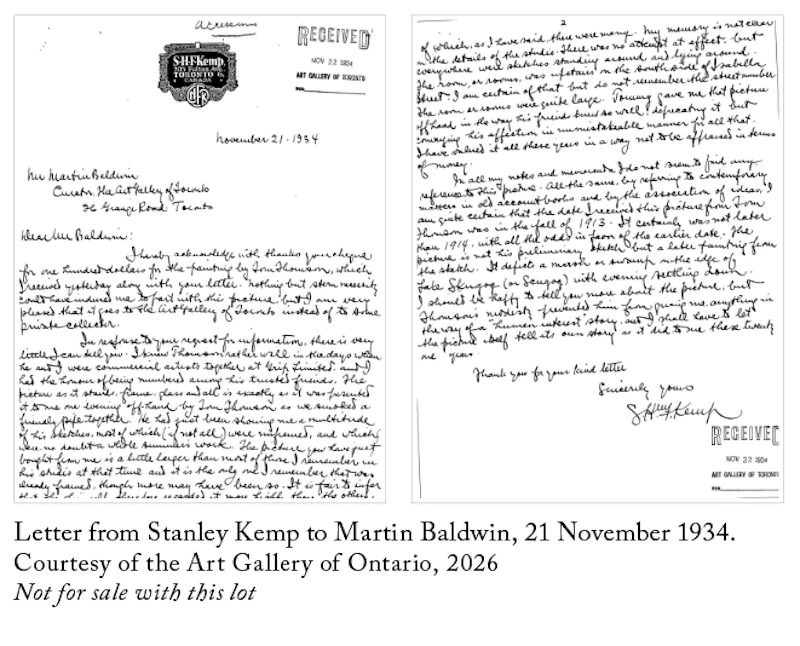 Accessions
RECEIVED
NOV 22 1934
ART GALLERY OF TORONTO
S·H·F·Kemp
TORONTO
CANADA
November 21 · 1934
Mr Martin Baldwin
Curator. The Art Gallery of Toronto
26 Grange Road Toronto
Dear Mr Baldwin:
I hereby acknowledge with thanks your cheque
for one hundred dollars for the painting by Tom Thomson, which
I received yesterday along with your letter. Nothing but stern necessity
could have induced me to part with this picture, but I am very
pleased that it goes to the Art Gallery of Toronto instead of to some
private collector.
In response to your request for information, there is very
little I can tell you. I knew Thomson rather well in the days when
he and I were commercial artists together at Grip Limited, and I
had the honour of being numbered among his trusted friends. The
picture as it stands, frame, glass and all is exactly as it was presented
to me one evening off-hand by Tom Thomson as we smoked a
friendly pipe together. He had just been showing me a multitude
of his sketches, most of which (if not all) were unframed, and which
were no doubt a whole summer's work. The picture you have just
bought from me is a little larger than most of those I remember in
his studio at that time and it is the only one I remember that was
already framed, though more may have been so. It is fair to infer
2
of which, as I have said, there were many. My memory is not clear
on the details of the studio. There was no attempt at effect, but
everywhere were sketches standing around and lying around.
The room, or rooms, was upstairs on the south side of Isabella
Street. I am certain of that but do not remember the street number
The room or rooms were quite large. Tommy gave me that picture
offhand in the way his friends knew so well; deprecating it but
conveying his affection in unmistakeable manner for all that.
I have valued it all these years in a way not to be appraised in terms
of money.
In all my notes and memoranda I do not seem to find any
reference to this picture. All the same, by referring to contemporary
matters in old account books and by the association of ideas, I
am quite certain that the date I received this picture from Tom
Thomson was in the fall of 1913. It certainly was not later
than 1914, with all the odds in favor of the earlier date. The
picture is not his preliminary sketch but a later painting from
the sketch. It depicts a marsh or swamp on the edge of
Lake Skugog (or Scugog) with evening settling down.
I should be happy to tell you more about the picture, but
Thomson's modesty prevented him from giving me anything in
the way of a "human interest" story, and I shall have to let
the picture itself tell its own story as it did to me these twenty
one years.
Thank you for your kind letter
Sincerely yours
S H F Kemp
RECEIVED
NOV 22 1934
ART GALLERY OF TORONTO
Letter from Stanley Kemp to Martin Baldwin, 21 November 1934.
Courtesy of the Art Gallery of Ontario, 2026
Not for sale with this lot